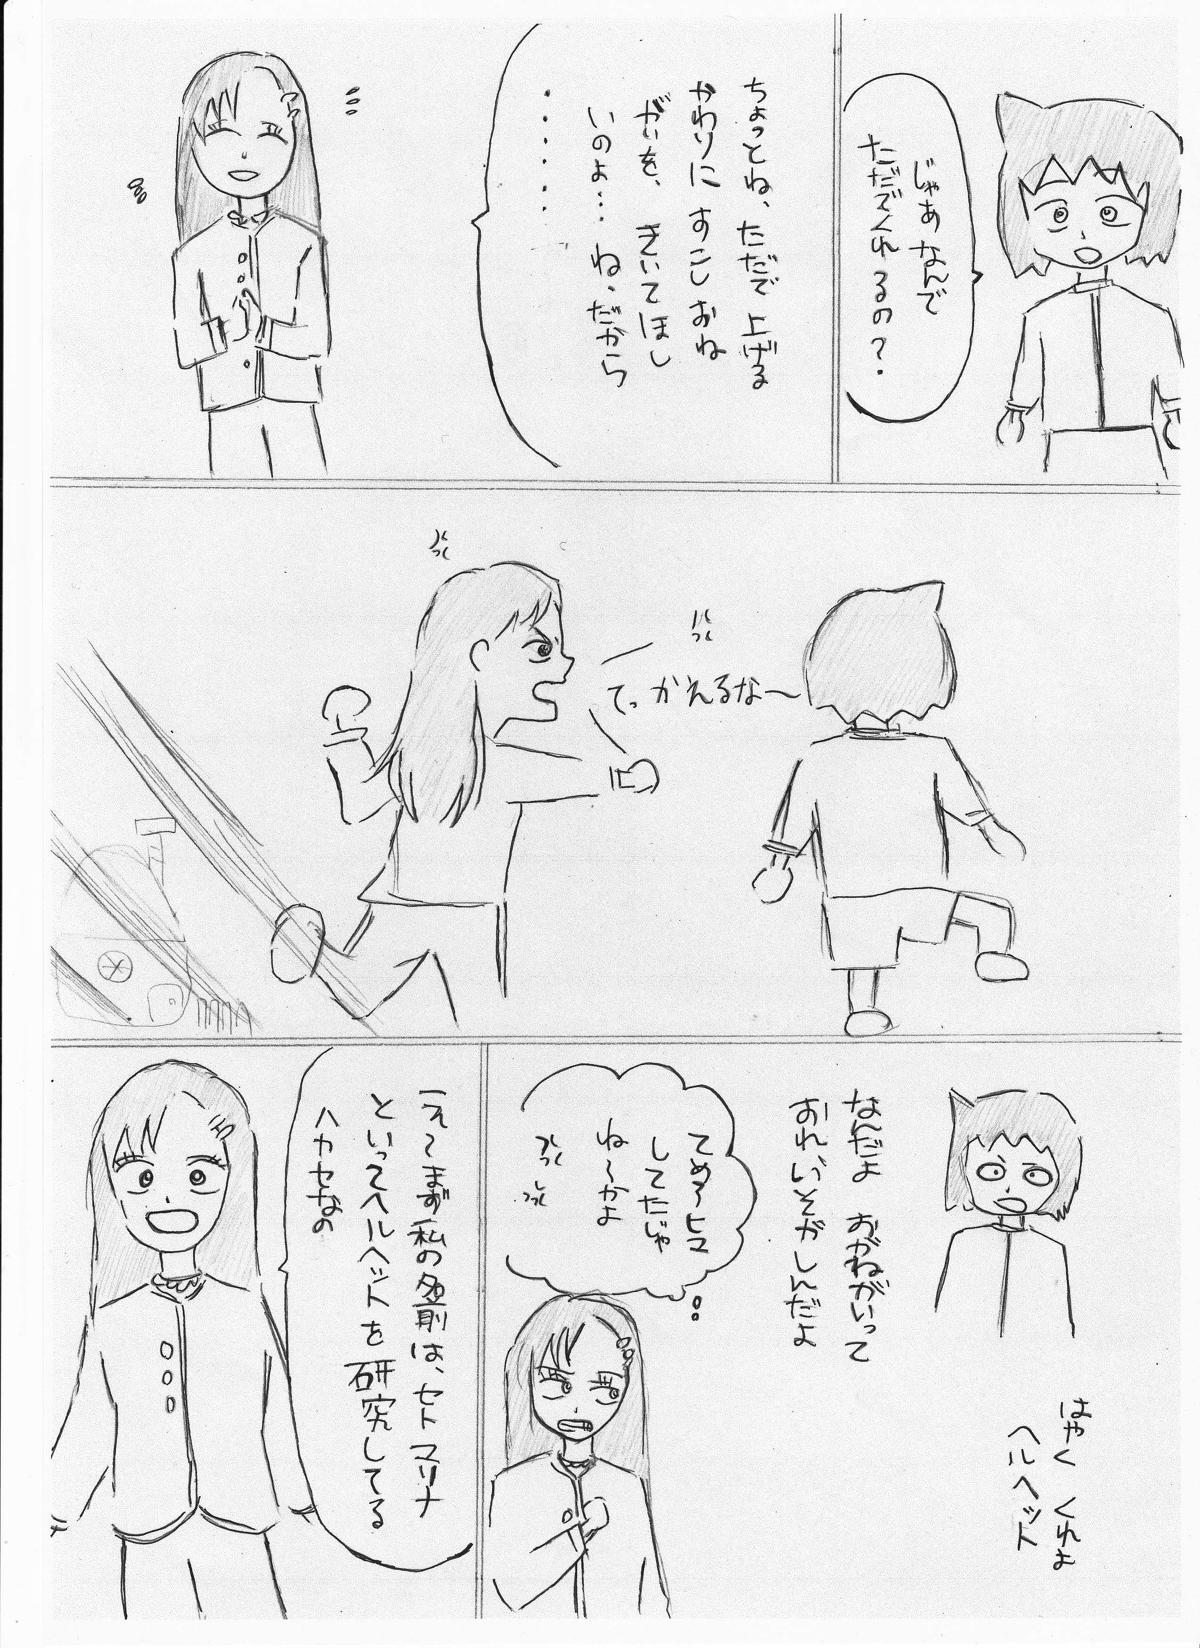 じゃあなんで
ただでくれるの?
ちょっとね、ただで上げる
かわりにすこしおね
がいを、きいてほし
いのよ…ね、だから
・・・・・・
てっかえるな〜
なんだよ おがねがいって
おれ、いそがしんだよ
はやく くれよ
ヘルヘット
てめ〜ヒマ
してたじゃ
ね〜かよ
え〜まず私の名前は、セトマリナ
といってヘルヘットを研究してる
ハカセなの